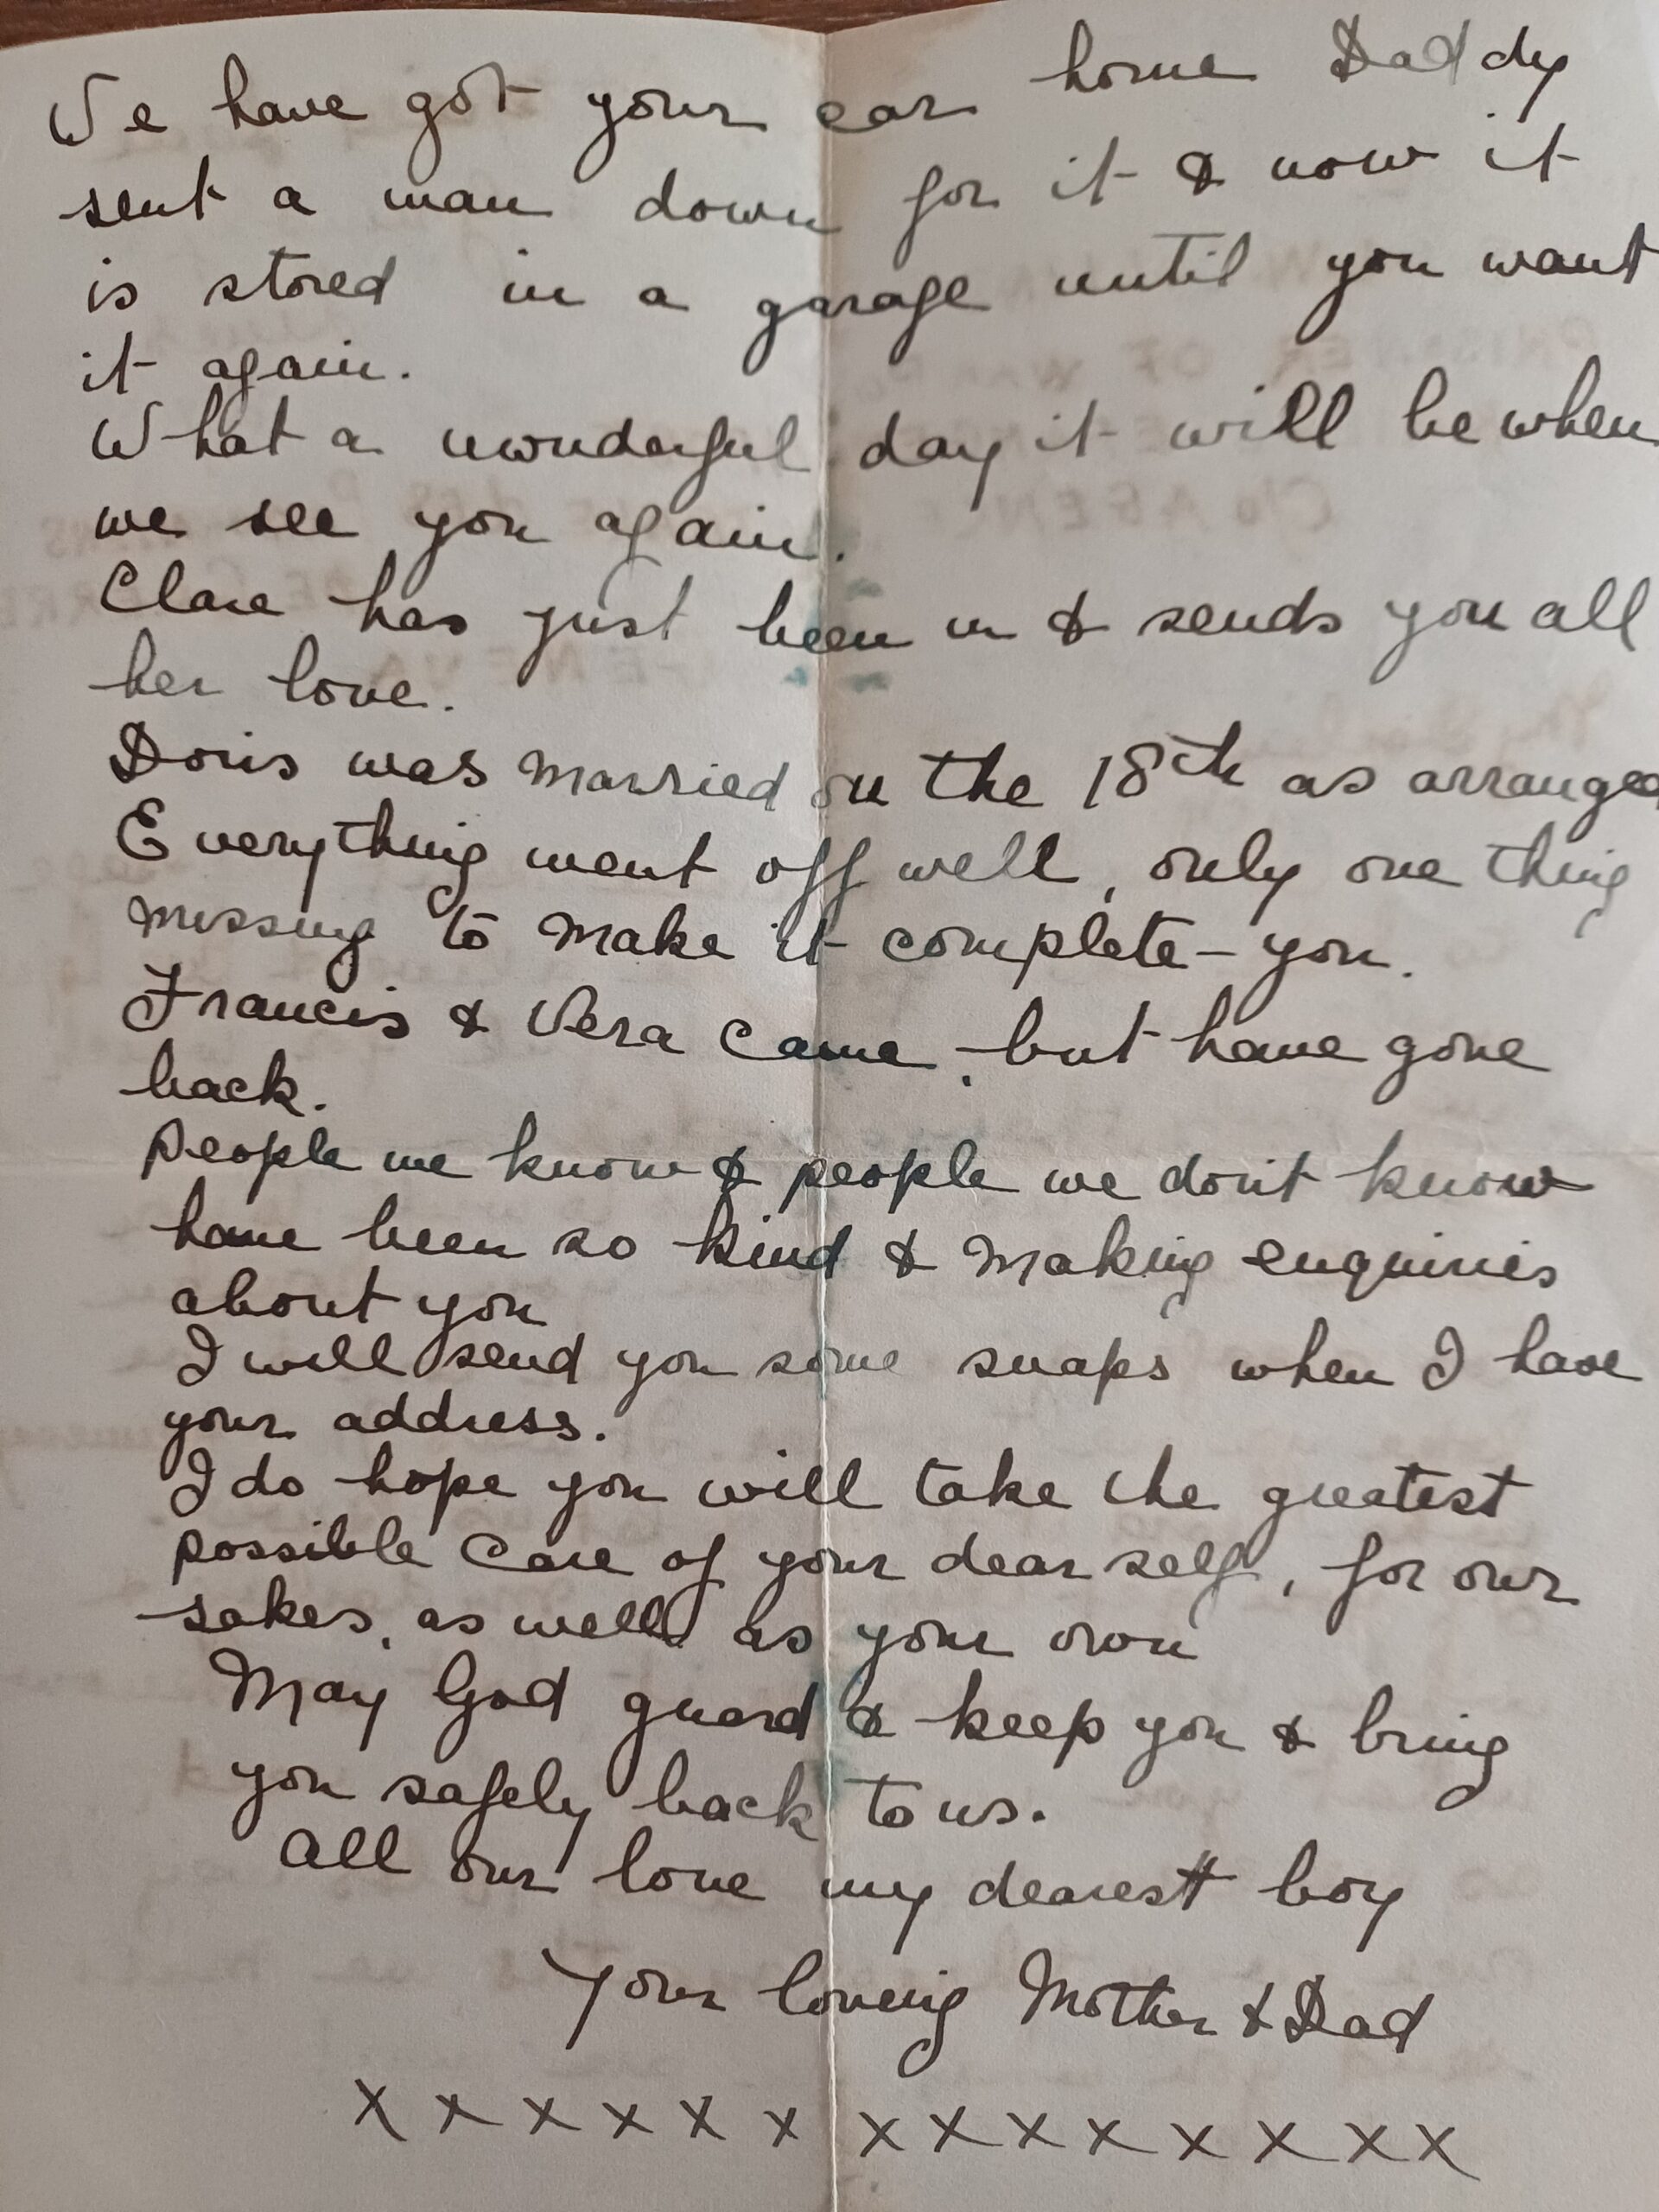 We have got your car home Daddy
sent a man down for it & now it
is stored in a garage until you want
it again.
What a wonderful day it will be when
we see you again.
Clare has just been in & sends you all
her love.
Doris was married on the 18th as arranged
Everything went off well, only one thing
missing to make it complete - you.
Francis & Vera came, but have gone
back.
People we know & people we don't know
have been so kind & making enquiries
about you
I will send you some snaps when I have
your address.
I do hope you will take the greatest
possible care of your dear self, for our
sakes, as well as your own
May God guard & keep you & bring
you safely back to us.
All our love my dearest boy
Your loving Mother & Dad
x x x x x x x x x x x x x x